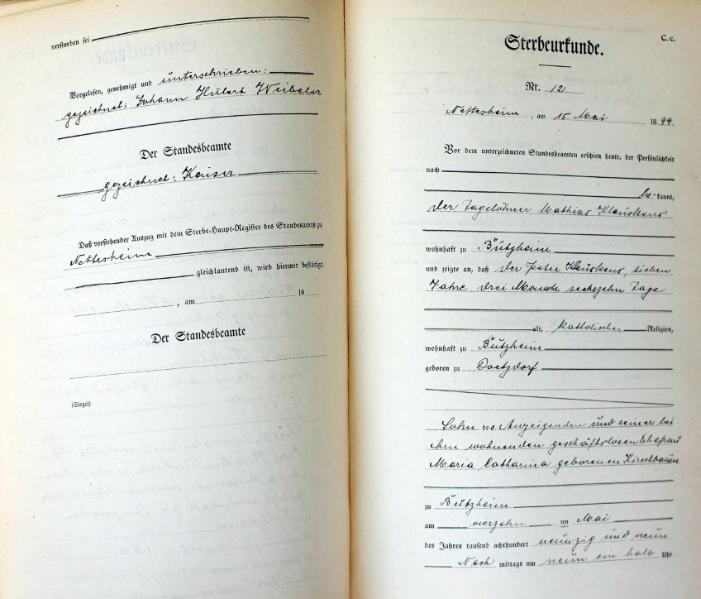 verstorben sei
Vorgelesen, genehmigt und unterschrieben:
gezeichnet: Johann Hubert Weibeler
Der Standesbeamte
gezeichnet: Kaiser
Daß vorstehender Auszug mit dem Sterbe-Haupt-Register des Standesamts zu
Nettersheim
gleichlautend ist, wird hiermit bestätigt.
, am 19
Der Standesbeamte
(Siegel)
C. c.
Sterbeurkunde.
Nr. 12
Nettersheim, am 15. Mai 1899.
Vor dem unterzeichneten Standesbeamten erschien heute, der Persönlichkeit
nach
be kannt,
der Tagelöhner Mathias Klauskens
wohnhaft zu Bützheim
und zeigte an, daß der Peter Klauskens, sieben
Jahre drei Monate sechszehn Tage
alt, katholischer Religion,
wohnhaft zu Bützheim
geboren zu
Sohn des Anzeigenden und seiner bei
ihm wohnenden geschäftslosen Ehefrau
Maria Catharina geborenen Kirschbaum
zu Bützheim
am vierzehn ten Mai
des Jahres tausend achthundert neunzig und neun
Nach mittags um neun ein halb Uhr